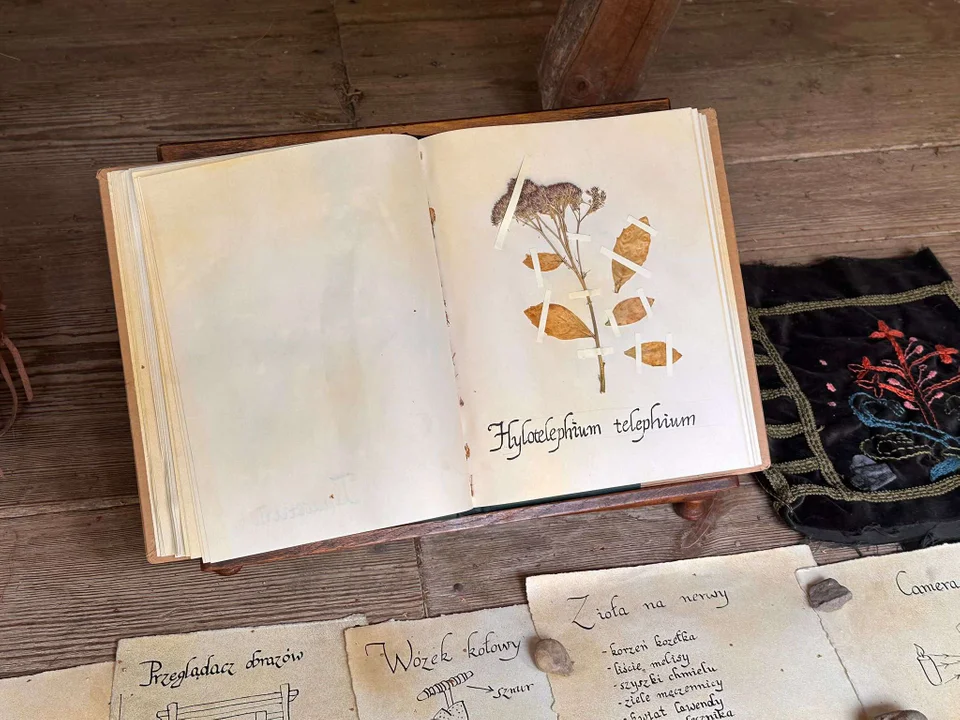 Hylotelephium telephium
Przeglądacz obrazów
Wózek kołowy
sznur
Zioła na nerwy
- korzeń kozłka
- liście melisy
- szyszki chmielu
- ziele męczennicy
- kwiat lawendy
Camera